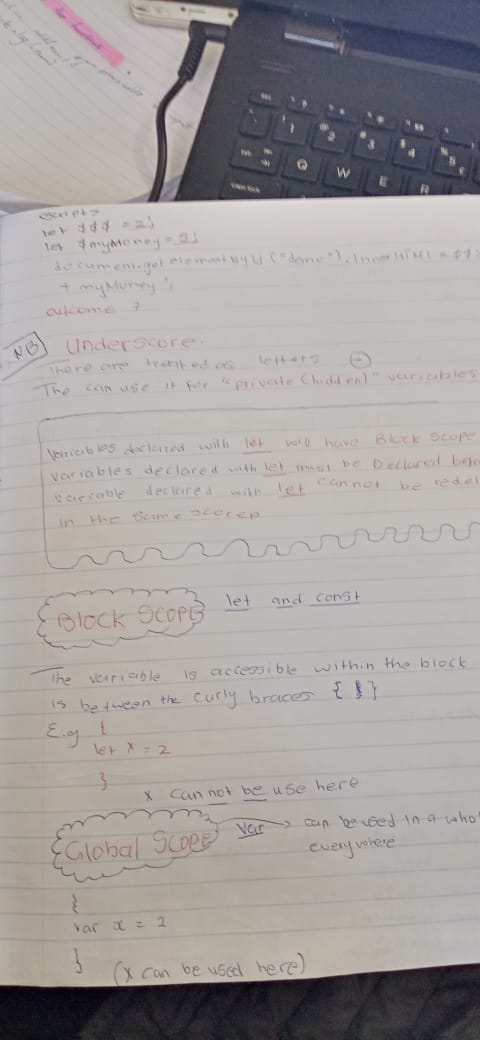 let $$$ = 2;
let $myMoney = 5;
document.getElementById ("demo"). InnerHTMl = $$
+ myMoney ;
outcome 7
NB Underscore.
There are treated as letters
The can use it for "private (hidden)" variables
Variables declared with let will have Block Scope
variables declared with let must be Declared befo
variable declared with let cannot be redel
in the same
Block SCOPE let and const
The variable is accessible within the block
is between the curly braces { }
E.g {
let x = 2
}
x cannot be use here
Global SCOPE Var → can be used in a who
everywhere
{
var x = 2
} (x can be used here)
1 2 3 4 5
Q W E R